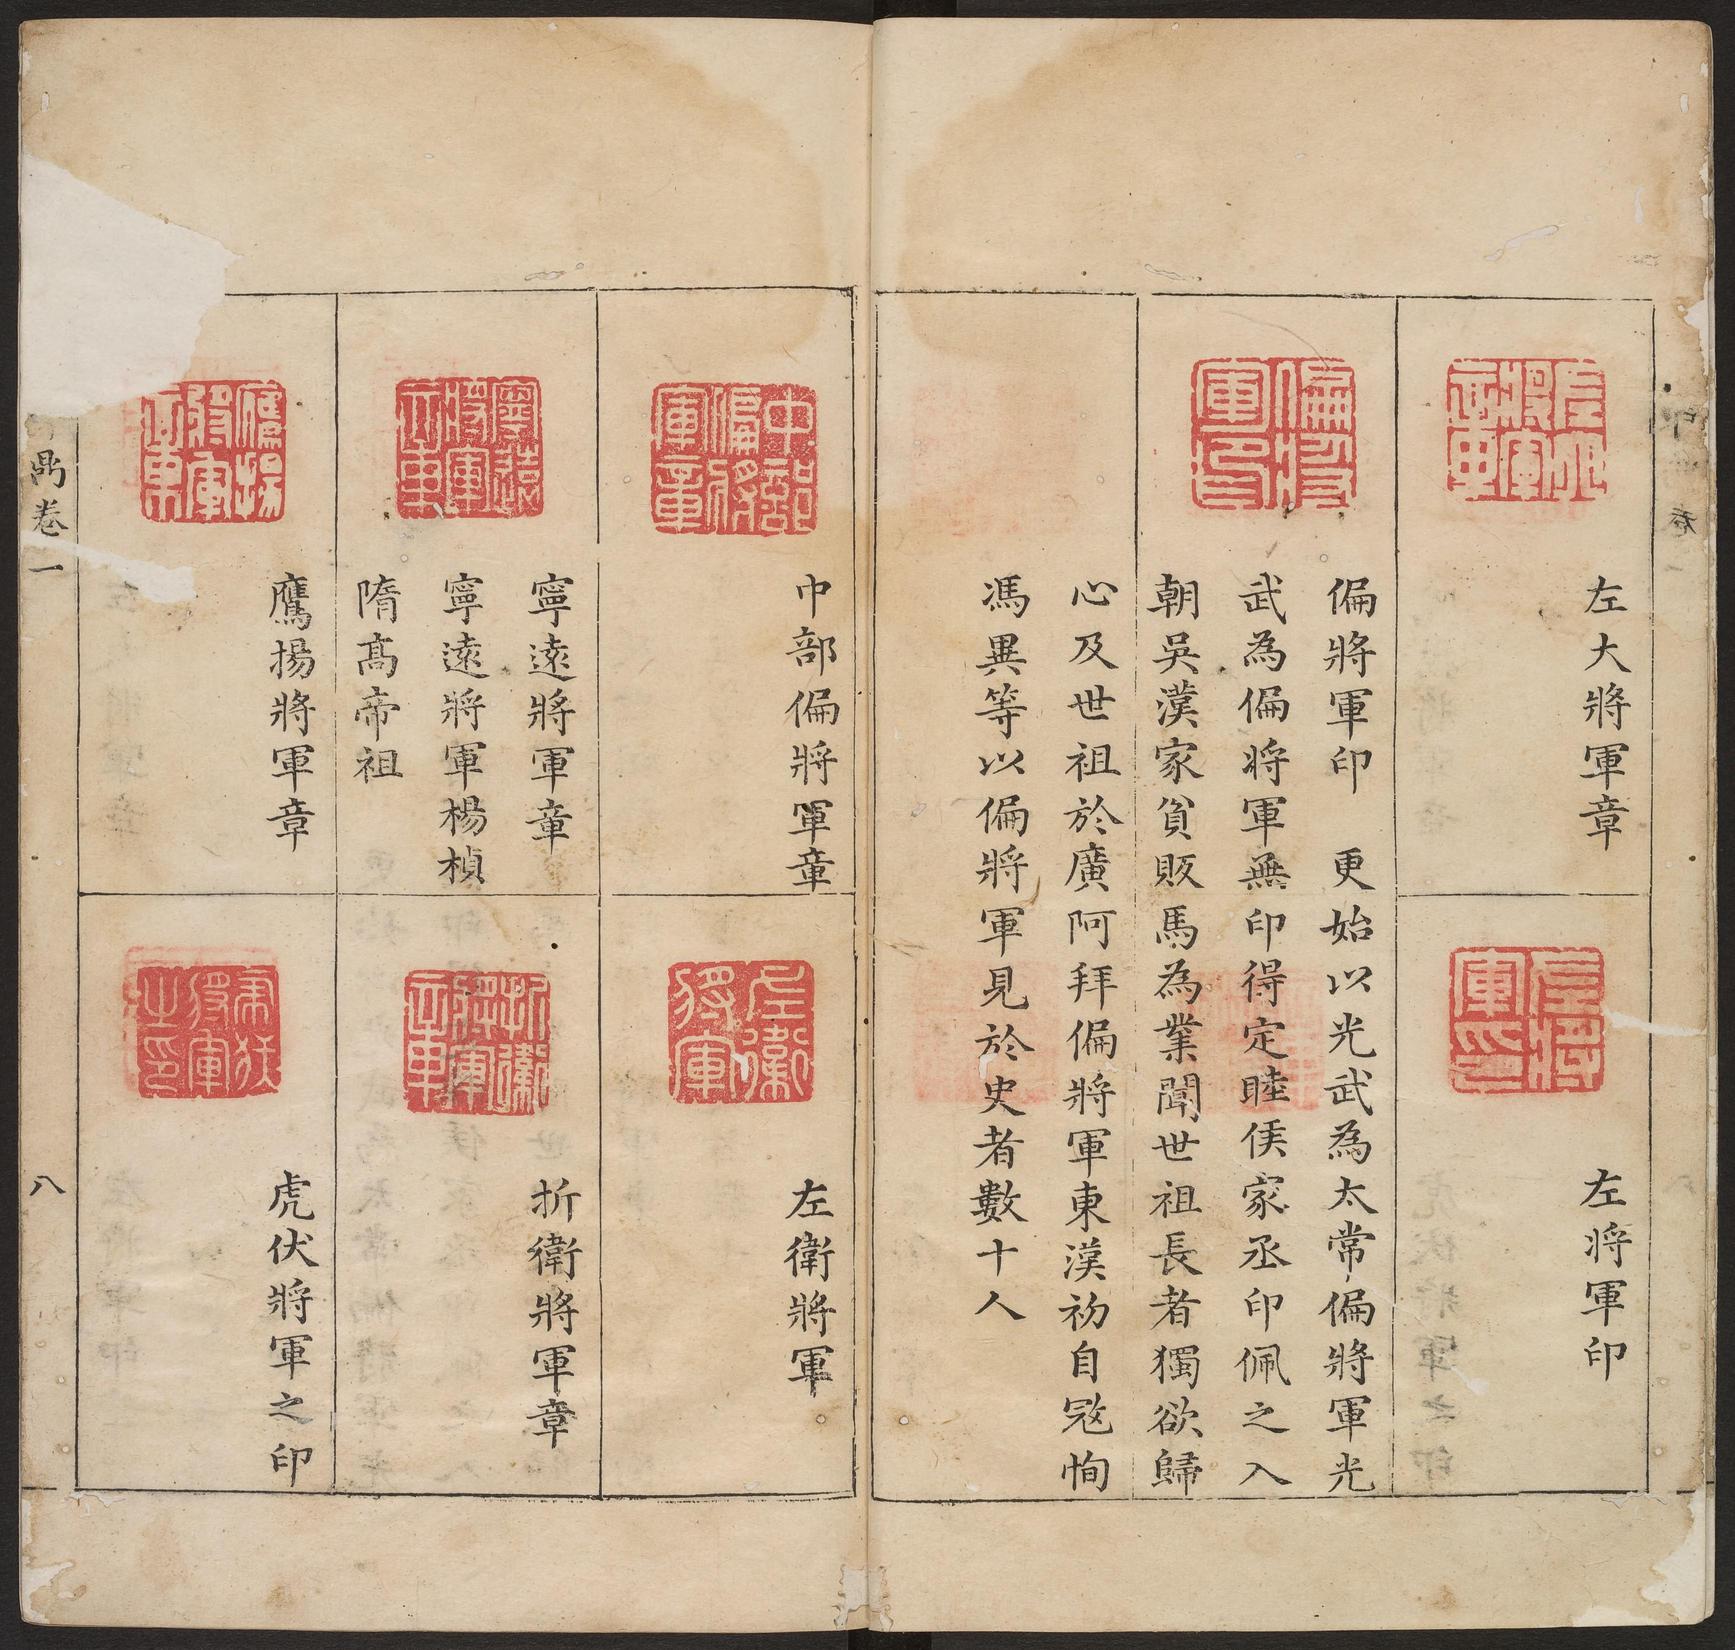 左大將軍章
左將軍印
偏將軍印　更始以光武為太常偏將軍光
武為偏將軍無印得定睦侯家丞印佩之入
朝吳漢家貧販馬為業聞世祖長者獨欲歸
心及世祖於廣阿拜偏將軍東漢初自冦恂
馮異等以偏將軍見於史者數十人
中部偏將軍章
左衛將軍
寧遠將軍章
寧遠將軍楊楨
隋髙帝祖
折衝將軍章
鷹揚將軍章
虎伏將軍之印
卷一
八